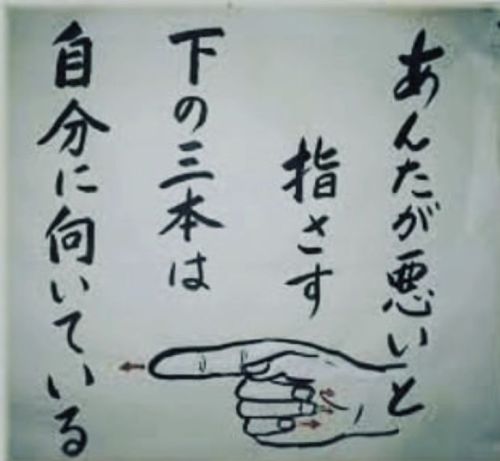 あんたが悪いと
指さす
下の三本は
自分に向いている